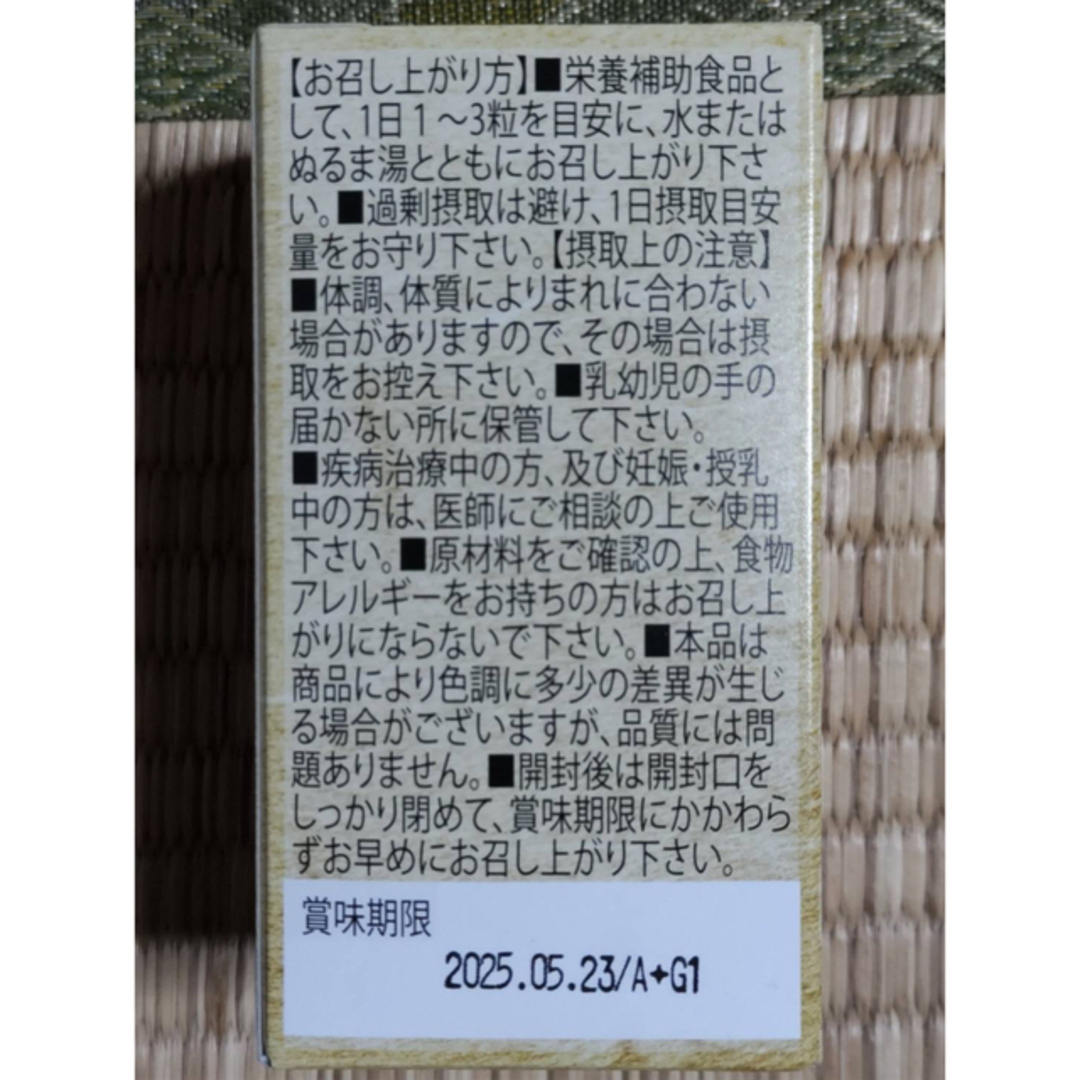 【お召し上がり方】■栄養補助食品と
して、1日1～3粒を目安に、水または
ぬるま湯とともにお召し上がり下さ
い。■過剰摂取は避け、1日摂取目安
量をお守り下さい。【摂取上の注意】
■体調、体質によりまれに合わない
場合がありますので、その場合は摂
取をお控え下さい。■乳幼児の手の
届かない所に保管して下さい。
■疾病治療中の方、及び妊娠・授乳
中の方は、医師にご相談の上ご使用
下さい。■原材料をご確認の上、食物
アレルギーをお持ちの方はお召し上
がりにならないで下さい。■本品は
商品により色調に多少の差異が生じ
る場合がございますが、品質には問
題ありません。■開封後は開封口を
しっかり閉めて、賞味期限にかかわら
ずお早めにお召し上がり下さい。
賞味期限
2025.05.23/A✦G1